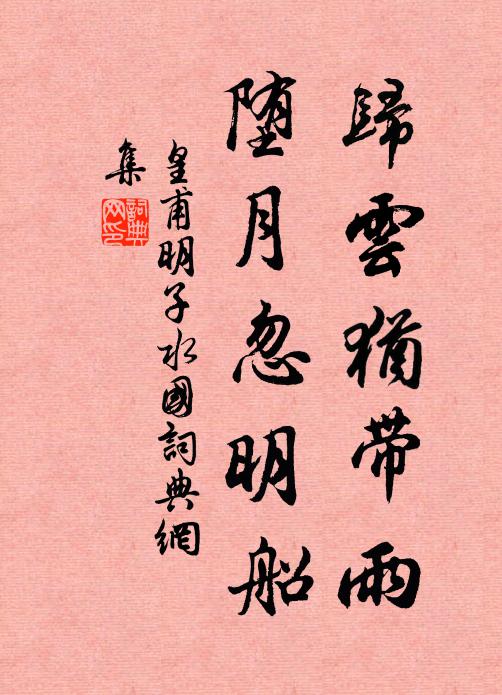 歸雲猶帶雨
堕月忽明船
皇甫明子水國詞典網
集
詞典網印